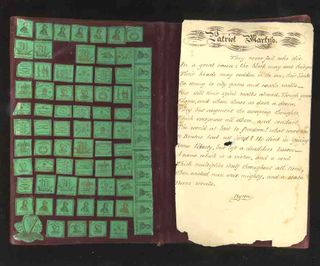 Patriot Martyrs.
They never fail who die
In a great cause: the block may soak their gore
Their heads may sodden in the sun, their limbs
Be strung to city gates and castle walls
But still their spirit walks abroad. Though years
Elapse, and others share as dark a doom,
They but augment the sweeping thoughts
Which overpower all others, and conduct
The world at last to freedom! what were we
If Brutus had not lived? He died in giving
Rome liberty, but left a deathless lesson
A name which is a virtue, and a soul
Which multiplies itself throughout all time,
When wicked men wax mighty, and a state
Turns servile.
Byron